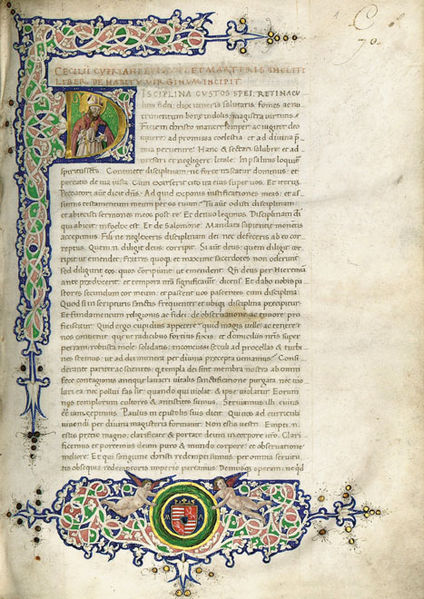 C
70
CECILII CYPRIANI
LIBER DE HABITV VIRGINVM INCIPIT
DISCIPLINA CVSTOS SPEI, RETINACV
lum fidei, dux itineris salutaris, fomes ac nu
trimentum bonę indolis, magistra virtutis.
Facit in christo manere semper ac iugiter deo
vivere, ad promissa coelestia et ad divina prę
mia pervenire. Hanc et sectari salubre et ad
versari et negligere letale. In psalmis loquitur
spiritus sanctus. Continete disciplinam ne forte irascatur dominus, et
pereatis de via iusta. Cum exarserit cito ira eius super vos. Et iterum
Peccatori autem dicit deus. Ad quid exponis iustificationes meas, et as
sumis testamentum meum per os tuum. Tu autem odisti disciplinam
et abiecisti sermones meos post te. Et denuo legimus. Disciplinam
qui abicit infoelix est. Et de Salomone. Mandata sapientię monentis
accepimus. Fili ne neglexeris disciplinam dei nec defeceris ab eo cor
reptus. Quem enim diligit deus corripit. Si autem deus quem diligit cor
ripit ut emendet, fratres quoque et maxime sacerdotes non oderunt
sed diligunt eos quos corripiunt ut emendent. Quando deus per Hieremia
ante prędixerit et tempora nostra significaverit dicens. Et dabo vobis pa
stores secundum cor meum, et pascent vos pascentes cum disciplina.
Quod si in scripturis sanctis frequenter et ubique disciplina pręcipitur
Et fundamentum religionis ac fidei de observatione ac timore pro
ficiscitur. Quid ergo cupidius appetere quid magis velle ac tenere
nos convenit, quam ut radicibus fortius fixis, et domiciliis nostris super
petram robusta mole solidatis, inconcussi seculi ad procellas et turbi
nes stemus, ut ad dei munera per divina pręcepta veniamus. Consi
derante pariter ac scientes, quod templa dei sint membra nostra ab omni
fece contagionis antiquę lavacri vitalis sanctificatione purgata, nec vio
lari ea, nec pollui fas sit, quando qui violat, et ipse violatur. Eorum
nos templorum cultores et antistites sumus. Serviamus illi cuius
esse iam coepimus. Paulus in epistolis suis dicit. Qui nos ad curricula
vivendi per divina magisteria formavit. Non estis vestri. Empti e
stis pretio magno, clarificate et portate deum in corpore vestro. Clari
ficemus et portemus deum puro et mundo corpore, et observatione
meliore. Et qui sanguine christi redempti sumus, per omnia servitu
tis obsequia redemptoris imperio pareamus. Demusque operam, ne quid